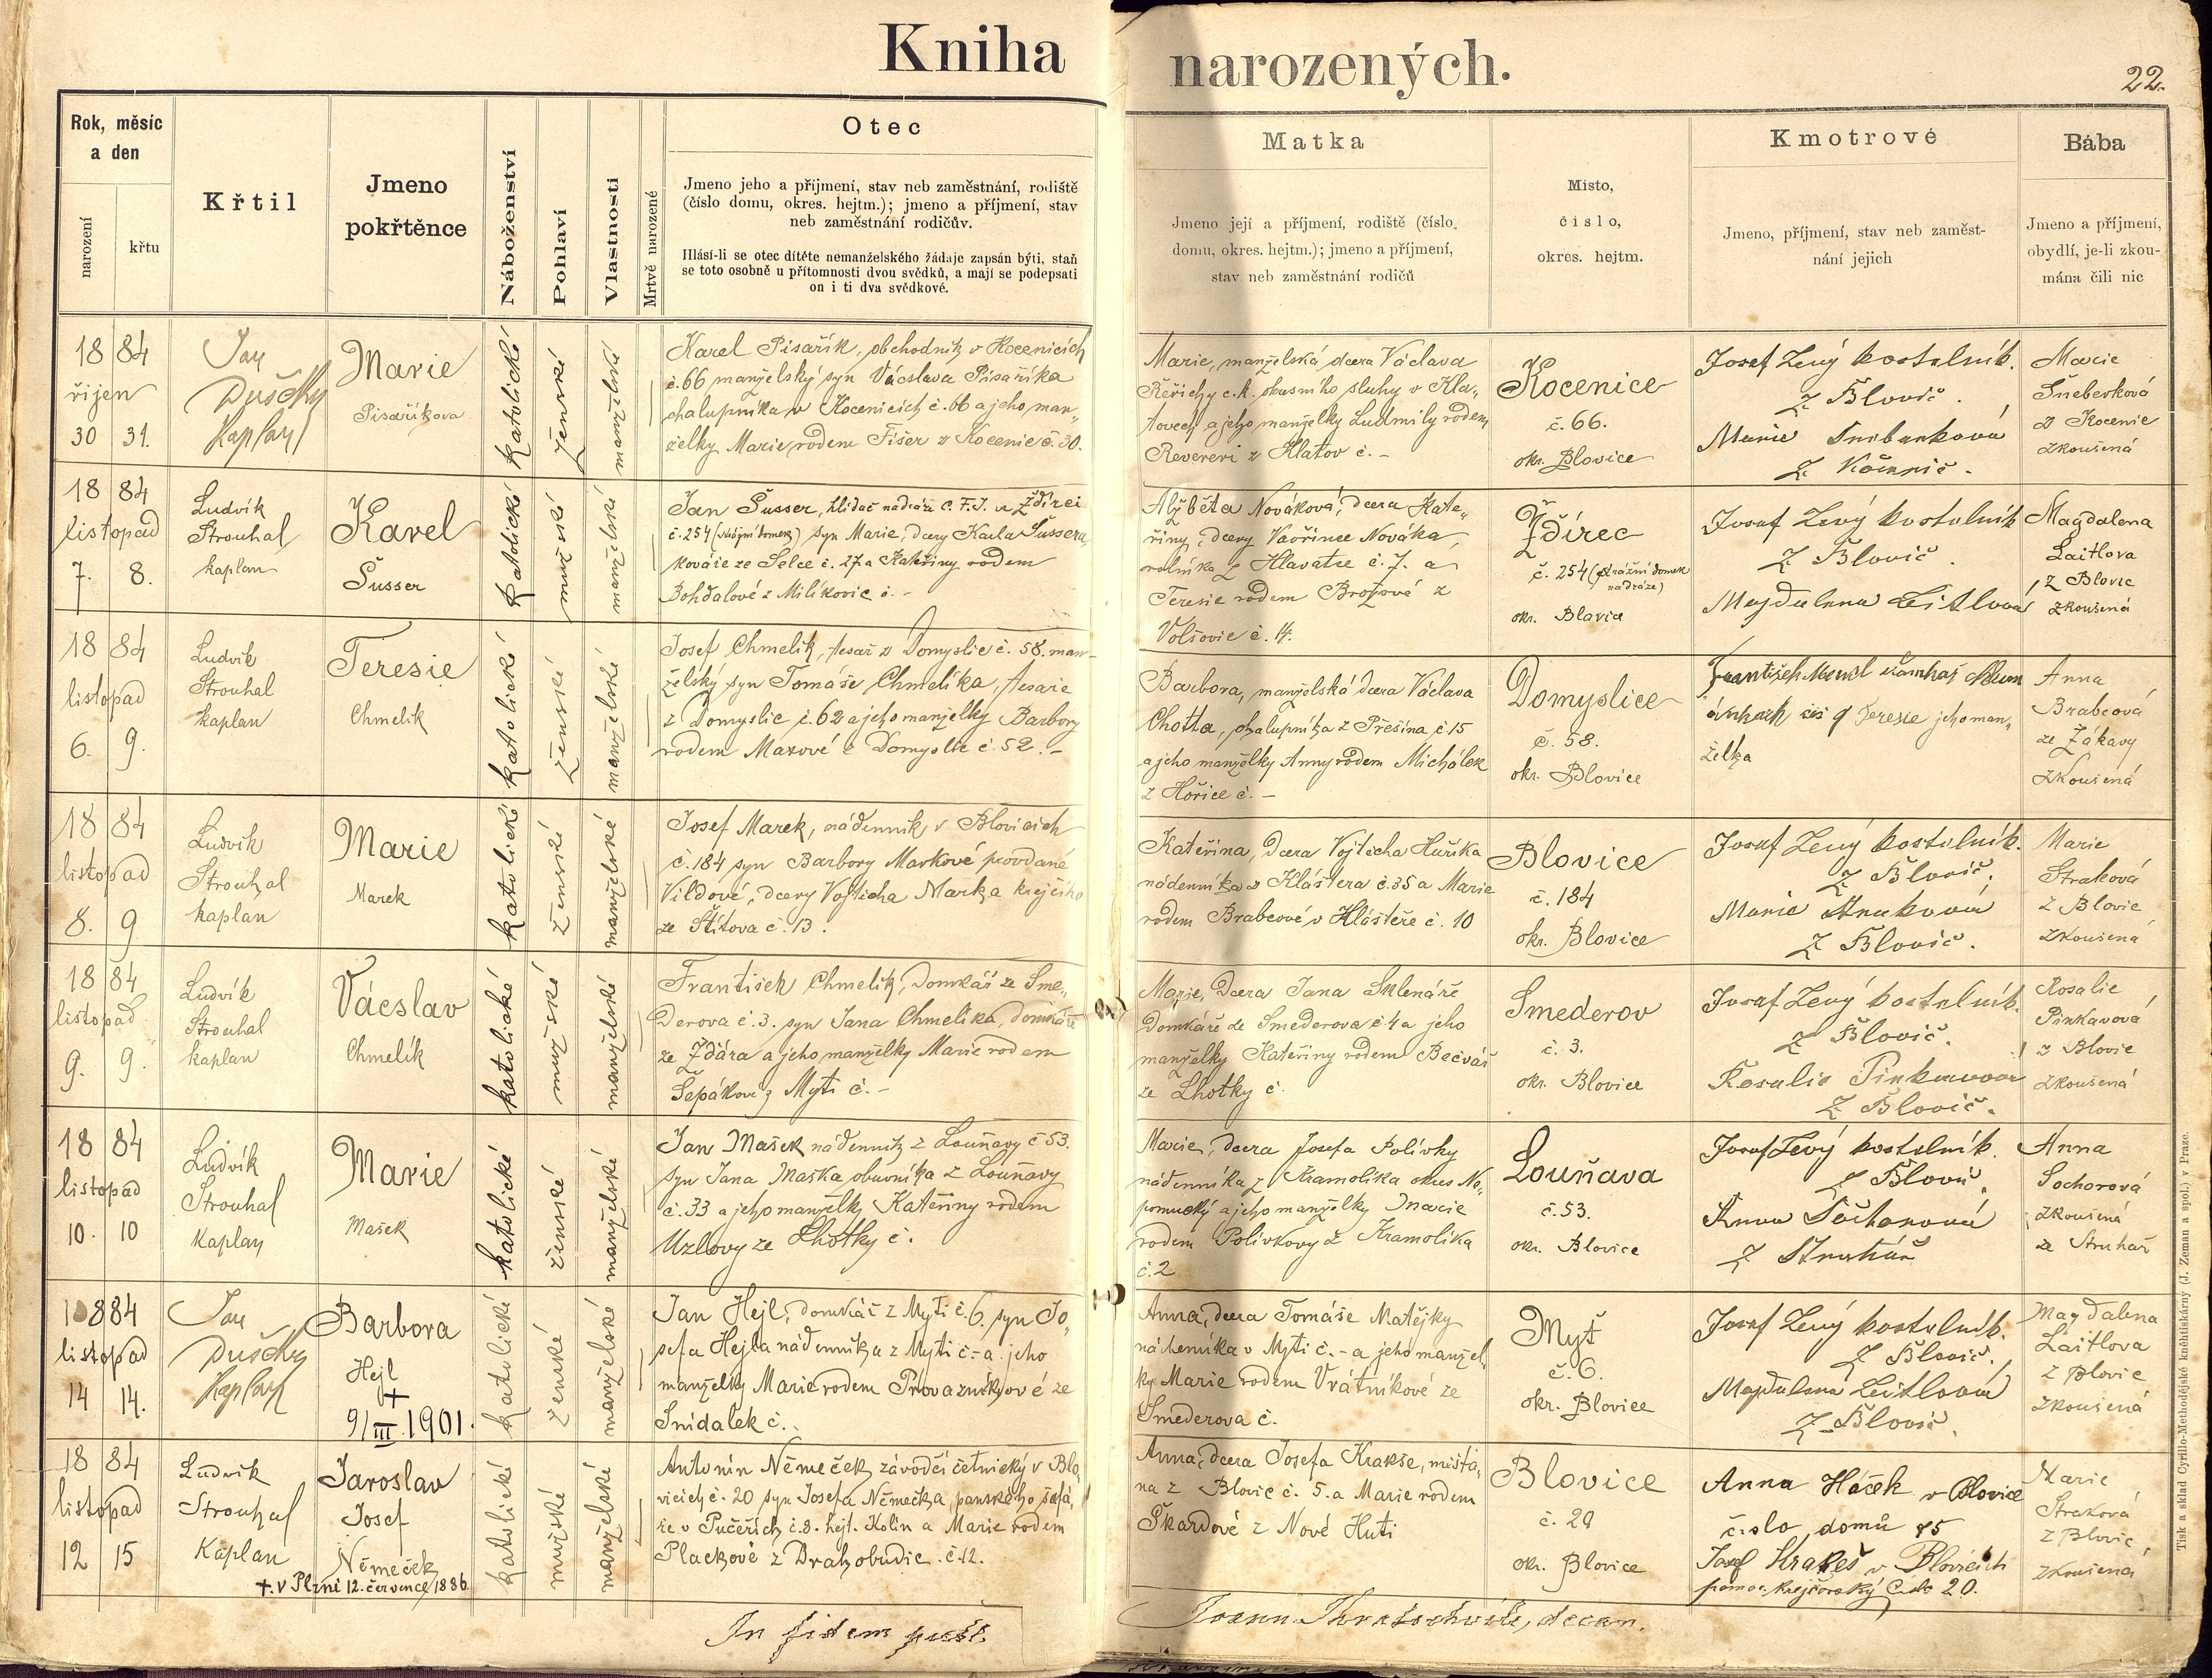 Kniha narozených.
22.
Rok, měsíc
a den
narození
křtu
Křtil
Jmeno
pokřtěnce
Náboženství
Pohlaví
Vlastnosti
Mrtvě narozené
Otec
Jmeno jeho a příjmení, stav neb zaměstnání, rodiště
(číslo domu, okres. hejtm.); jmeno a příjmení, stav
neb zaměstnání rodičův.
Hlásí-li se otec dítěte nemanželského žádaje zapsán býti, staň
se toto osobně u přítomnosti dvou svědků, a mají se podepsati
on i ti dva svědkové.
Matka
Jmeno její a příjmení, rodiště (číslo
domu, okres. hejtm.); jmeno a příjmení,
stav neb zaměstnání rodičů
Místo,
číslo,
okres. hejtm.
Kmotrové
Jmeno, příjmení, stav neb zaměst-
nání jejich
Bába
Jmeno a příjmení,
obydlí, je-li zkou-
mána čili nic
18 84
říjen
30 31.
Jan
Duschky
Kaplan
Marie
Pisaříkova
katolické
ženské
manželské
Karel Pisařík, obchodník v Kocenicích
č. 66 manželský syn Václava Pisaříka
chalupníka v Kocenicích č. 66 a jeho man„
želky Marie rodem Fišer z Kocenic č. 30.
Marie, manželská dcera Václava
Řeřichy c.k. okresního sluhy v Kla„
tovech a jeho manželky Ludmily rodem
z Klatov č. -
Kocenice
č. 66.
okr. Blovice
Josef Levý kostelník.
z Blovic.
Marie
z Kocenic.
Marie
Šneberková
z Kocenic
zkoušená
18 84
listopad
7. 8.
Ludvík
Strouhal
kaplan
Karel
Šusser
katolické
mužské
manželské
Jan Šusser, hlídač nádraží C. F. J. u Ždírci
č. 254 (strážní domek) syn Marie, dcery Karla Šussera,
kováře ze Selce č. 27 a Kateřiny rodem
Bohdalové z Milíkovic č. -
Alžběta Nováková, dcera Kate„
řiny, dcery Vavřince Nováka,
rolníka z Hlavatce č. 7. a
Teresie rodem Brožové z
Volšovic č. 14.
Ždírec
č. 254 (strážní domek
nádraže)
okr. Blovice
Josef Levý kostelník
z Blovic.
Magdalena Leitlová
Magdalena
Laitlova
z Blovic
zkoušená
18 84
listopad
6. 9.
Ludvík
Strouhal
kaplan
Teresie
Chmelik
katolické
ženské
manželské
Josef Chmelík, tesař z Domyslic č. 58. man-
želský syn Tomáše Chmelíka, tesaře
z Domyslic č. 62 a jeho manželky Barbory
rodem Maxové z Domyslic č. 52. -
Barbora, manželská dcera Václava
Chotta, chalupníka z Přešina č. 15
a jeho manželky Anny rodem Michálek
z Hořice č. -
Domyslice
č. 58.
okr. Blovice
František
Teresie jeho man„
želka
Anna
Brabcová
ze Žákavy
zkoušená
18 84
listopad
8. 9
Ludvík
Strouhal
kaplan
Marie
Marek
katolické
ženské
manželské
Josef Marek, nádenník v Blovicích
č. 184 syn Barbory Markové provdané
Vildové, dcery Vojtěcha Marka krejčího
ze Štítova č. 13.
Kateřina, dcera Vojtěcha Huřika
nádenníka z Kláštera č. 35 a Marie
rodem Brabcové v Klášteře č. 10
Blovice
č. 184
okr. Blovice
Josef Levý kostelník.
z Blovic.
Marie Straková
z Blovic.
Marie
Straková
z Blovic
zkoušená
18 84
listopad
9. 9.
Ludvík
Strouhal
kaplan
Vácslav
Chmelík
katolické
mužské
manželské
František Chmelík, domkář ze Sme„
derova č. 3. syn Jana Chmelíka, domkáře
ze Ždára a jeho manželky Marie rodem
Šepákové z Myti č. -
Marie, dcera Jana Sklenáře
domkáře ze Smederova č 4 a jeho
manželky Kateřiny rodem Bečvář
ze Lhotky č.
Smederov
č. 3.
okr. Blovice
Josef Levý kostelník.
z Blovic.
Rosalie Pinkavová
z Blovic.
Rosalie
Pinkavová
z Blovic
zkoušená
18 84
listopad
10. 10
Ludvík
Strouhal
Kaplan
Marie
Mašek
katolické
ženské
manželské
Jan Mašek nádenník z Louňavy č 53.
syn Jana Maška obuvníka z Louňavy
č. 33 a jeho manželky Kateřiny rodem
Uzlovy ze Lhotky č.
Marie, dcera Josefa Polívky
nádenníka z Kramolika okres Ne„
pomucký a jeho manželky Marie
rodem Polívkovy z Kramolika
č. 2
Louňava
č. 53.
okr. Blovice
Josef Levý kostelník.
z Blovic.
Anna Sochorová
z Struhař
Anna
Sochorová
zkoušená
ze Struhař
1884
listopad
14 14.
Jan
Duschky
Kaplan
Barbora
Hejl
+
9/III 1901.
katolické
ženské
manželské
Jan Hejl, domkář z Myti č. 6. syn Jo„
sefa Hejla nádenníka z Myti č. - a jeho
manželky Marie rodem Provazníkové ze
Snidalek č.
Anna, dcera Tomáše Matějky
nádenníka v Myti č. - a jeho manžel„
ky Marie rodem Vrátníkové ze
Smederova č.
Myť
č. 6.
okr. Blovice
Josef Levý kostelník.
z Blovic.
Magdalena Leitlová
z Blovic.
Magdalena
Laitlova
z Blovic
zkoušená
18 84
listopad
12 15
Ludvík
Strouhal
Kaplan
Jaroslav
Josef
Němeček
+. v Plzni 12. července 1886
katolické
mužské
manželské
Antonín Němeček, závodčí četnický v Blo„
vicích č. 20 syn Josefa Němečka, panského šafá„
ře v Pučeřích č. 8. hejt. Kolín a Marie rodem
Plackové z Drahobudic č. 12.
Anna, dcera Josefa Krakše, měšťa„
na z Blovic č. 5. a Marie rodem
Škardové z Nové Huti
Blovice
č. 20
okr. Blovice
Anna Háček v Blovice
číslo domů 85
Josef Krakeš v Blovicích
pomoc. krejčovský číslo 20.
Marie
Straková
z Blovic
zkoušená
In fidem
Joann. decan.
Tisk a sklad Cyrillo-Methodějské knihtiskárny (J. Zeman a spol.) v Praze.